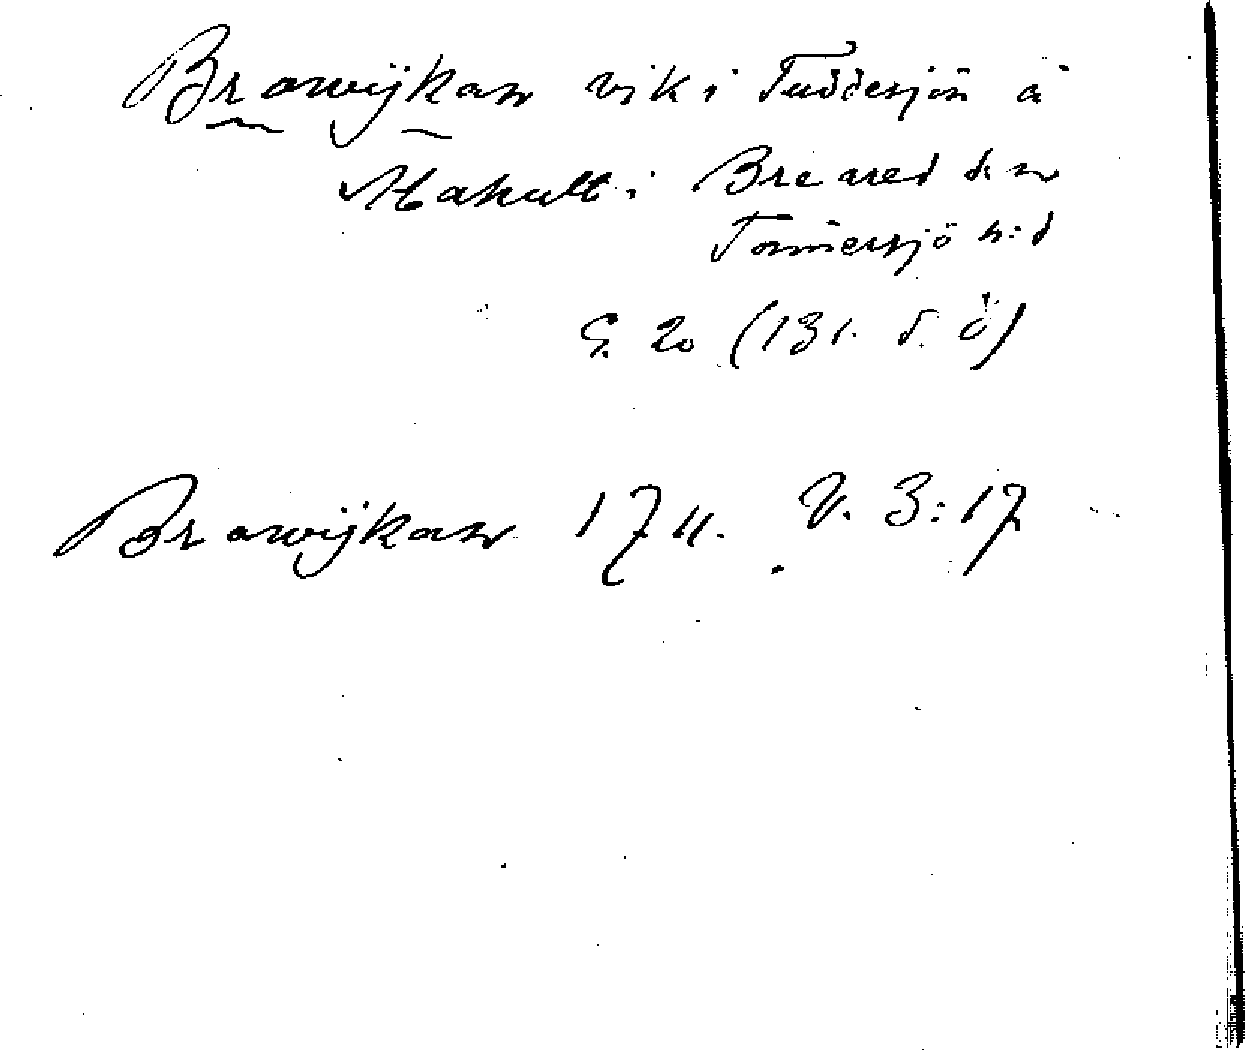 Browijkan vik i Tuddesjön å
Mahult i Breared sn
Tönnersjö h:d
G. 20 (131. S. Ö)
Browijkan 1711. V. 3:17